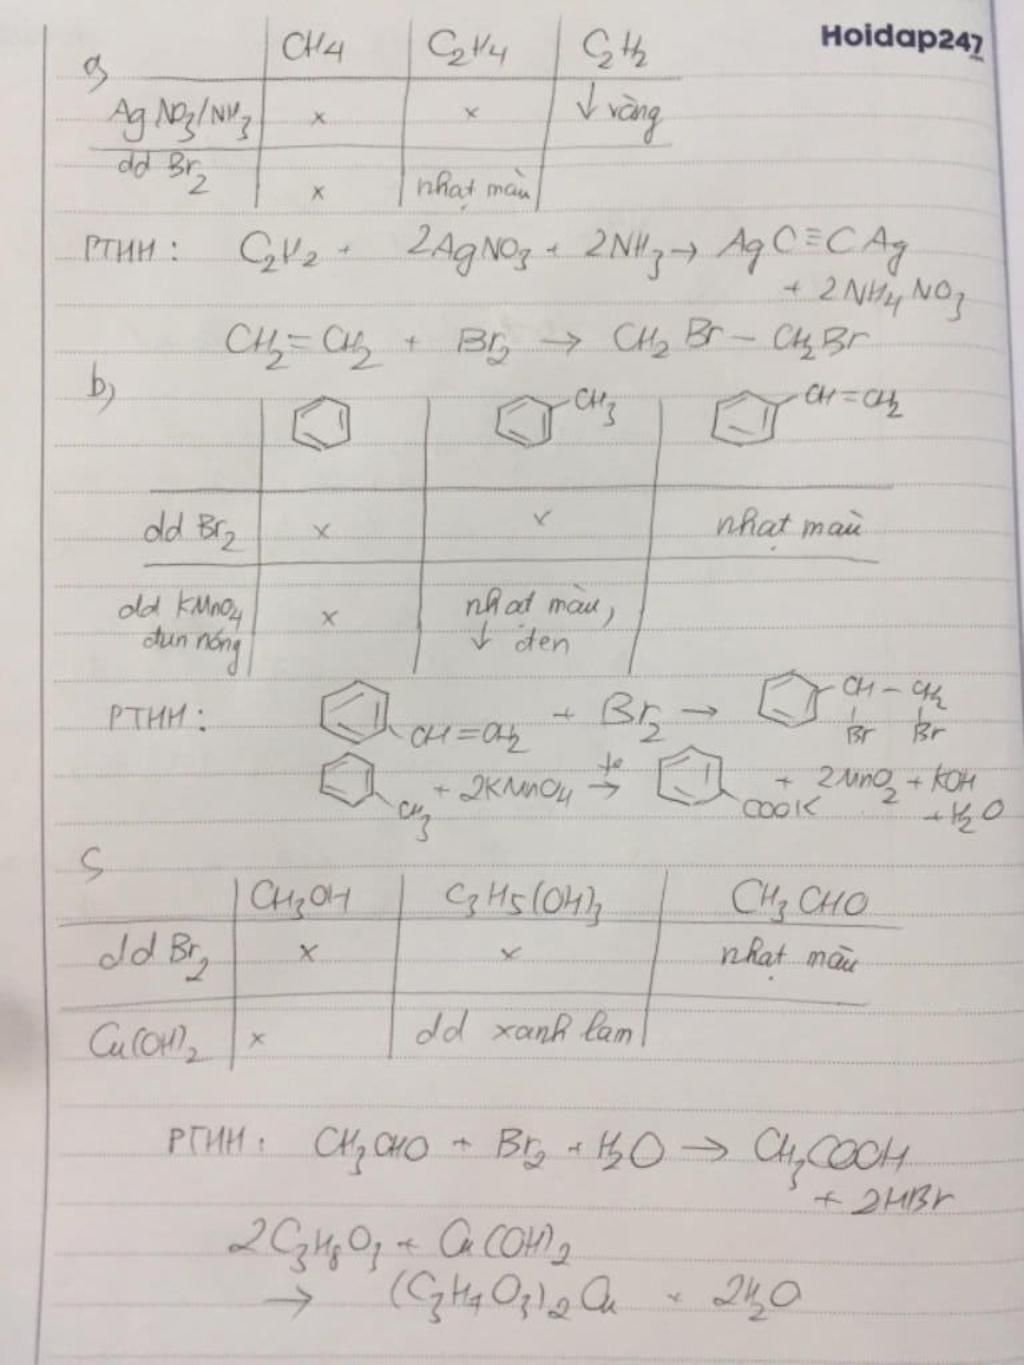 Hoidap247
a) CH4 C2H4 C2H2
AgNO3/NH3 x x ↓ vàng
dd Br2 x nhạt màu
PTHH: C2H2 + 2AgNO3 + 2NH3 → AgC≡CAg
+ 2NH4NO3
CH2=CH2 + Br2 → CH2Br - CH2Br
b)
CH3 CH=CH2
dd Br2 x x nhạt màu
dd KMnO4 x nhạt màu,
đun nóng ↓ đen
PTHH: CH=CH2 + Br2 → CH - CH2
Br Br
CH3 + 2KMnO4 t° → COOK + 2MnO2 + KOH
+ H2O
c
CH3OH C3H5(OH)3 CH3CHO
dd Br2 x x nhạt màu
Cu(OH)2 x dd xanh lam
PTHH: CH3CHO + Br2 + H2O → CH3COOH
+ 2HBr
2C3H8O3 + Cu(OH)2
→ (C3H7O3)2Cu + 2H2O